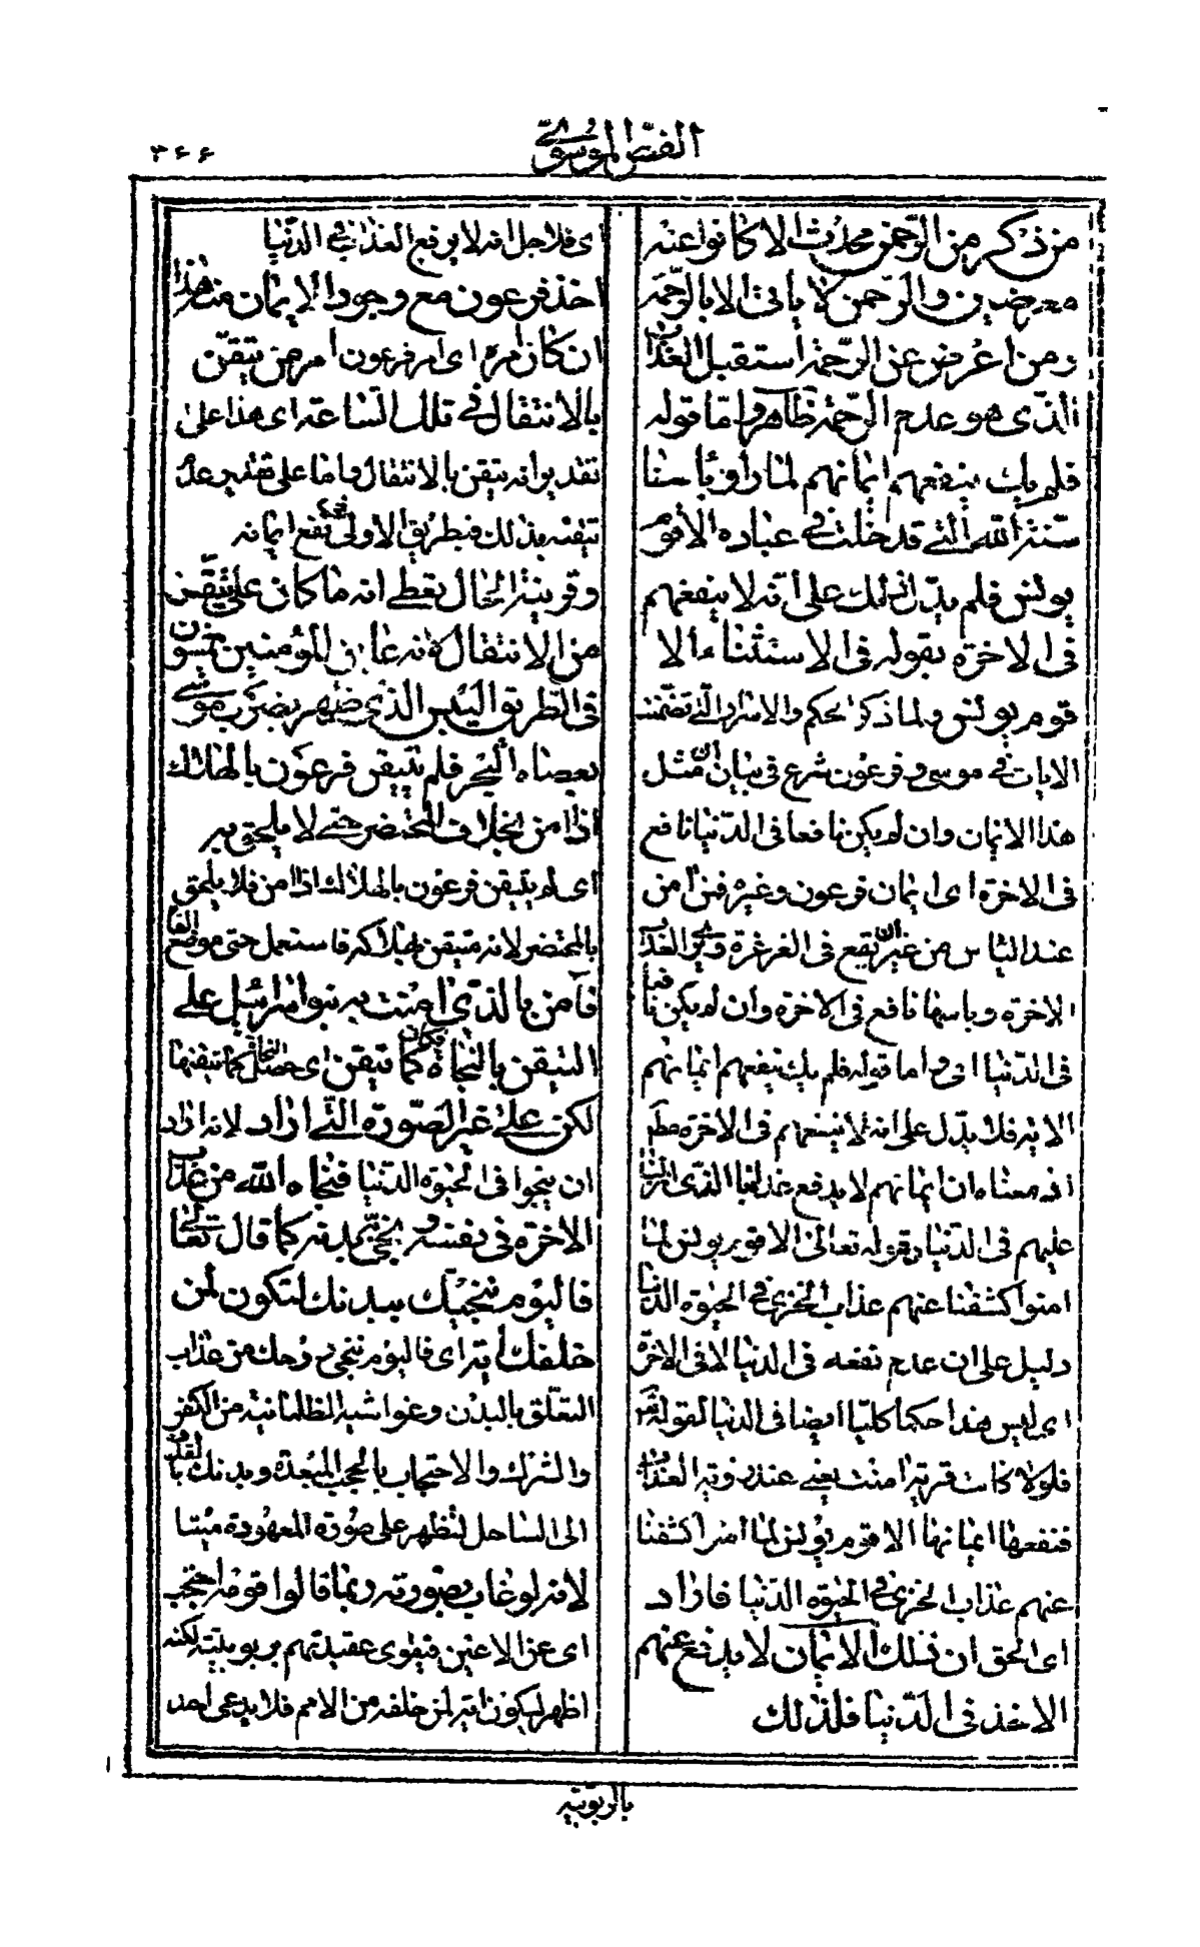 الفص الموسوي
٣٦٦
من ذكر من الرحمن محدث الا كانوا عنه
معرضين والرحمن لا ياتى الا بالرحمة
ومن اعرض عن الرحمة استقبل العذاب
الذى هو عدم الرحمة ظاهر واما قوله
فلم يك ينفعهم ايمانهم لما راوا باسنا
سنة الله التي قد خلت في عباده الا قوم
يونس فلم يدل ذلك على انه لا ينفعهم
فى الاخرة بقوله فى الاستثناء الا
قوم يونس ولما ذكر الحكم والاسرار التى تضمنت
الايات في موسى وفرعون شرع فى بيان ان مثل
هذا الايمان وان لم يكن نافعا فى الدنيا نافع
فى الاخرة اى ايمان فرعون وغيره فمن امن
عند الياس من غير ان يقع فى الغرغرة ويرى العذاب
الاخرة وباسها نافع فى الاخرة وان لم يكن نافعا
فى الدنيا واما قوله فلم يك ينفعهم ايمانهم
الاية فلا يدل على انه لا ينفعهم فى الاخرة
انه معناه ان ايمانهم لا يدفع عذابنا الذى انزلنا
عليهم فى الدنيا وقوله تعالى الا قوم يونس لما
امنوا كشفنا عنهم عذاب الخزى في الحيوة الدنيا
دليل على ان عدم نفعه فى الدنيا لا فى الاخرة
اى ليس هذا حكما كليا ايضا فى الدنيا لقوله
فلولا كانت قرية امنت يعنى عند رؤية العذاب
فنفعها ايمانها الا قوم يونس لما امنوا كشفنا
عنهم عذاب الخزى في الحيوة الدنيا فاراد
اى الحق ان ذلك الايمان لا يدفع عنهم
الاخذ فى الدنيا فلذلك
اى فلاجل انه لا يرفع العذاب في الدنيا
اخذ فرعون مع وجود الايمان منه هذا
ان كان امره اى امر فرعون امر من تيقن
بالانتقال في تلك الساعة اى هذا على
تقدير انه تيقن بالانتقال واما على تقدير عدم
تيقنه بذلك فبطريق الاولى نفع ايمانه
وقرينة الحال تعطى انه ما كان على يقين
من الانتقال لانه عاين المؤمنين يمشون
فى الطريق اليبس الذى ظهر بضرب موسى
بعصاه البحر فلم يتيقن فرعون بالهلاك
اذ امن بخلاف المحتضر حتى لا يلحق به
اى لم يتيقن فرعون بالهلاك اذ امن فلا يلحق
بالمحتضر لانه متيقن بهلاكه فاستعمل حتى موضع الفاء
فآمن بالذى امنت به بنوا اسرائيل على
التيقن بالنجاة فكان كما تيقن اى حصل النجاة كما تيقنها
لكن على غير الصورة التى اراد لانه اراد
ان ينجوا فى الحيوة الدنيا فنجاه الله من عذاب
الاخرة فى نفسه ونجى بدنه كما قال تعالى
فاليوم ننجيك ببدنك لتكون لمن
خلفك اية اى فاليوم ننجى روحك من عذاب
التعلق بالبدن وغواشيه الظلمانية من الكفر
والشرك والاحتجاب بالحجب المبعدة وبدنك
الى الساحل لتظهر على صورته المعهودة ميتا
لانه لو غاب بصورته ربما قالوا قومه احتجب
اى عن الاعين فيقوى عقيدتهم بربوبيته لكنه
اظهر ليكون اية لمن خلفه من الامم فلا يدعى احد
بالربوبية